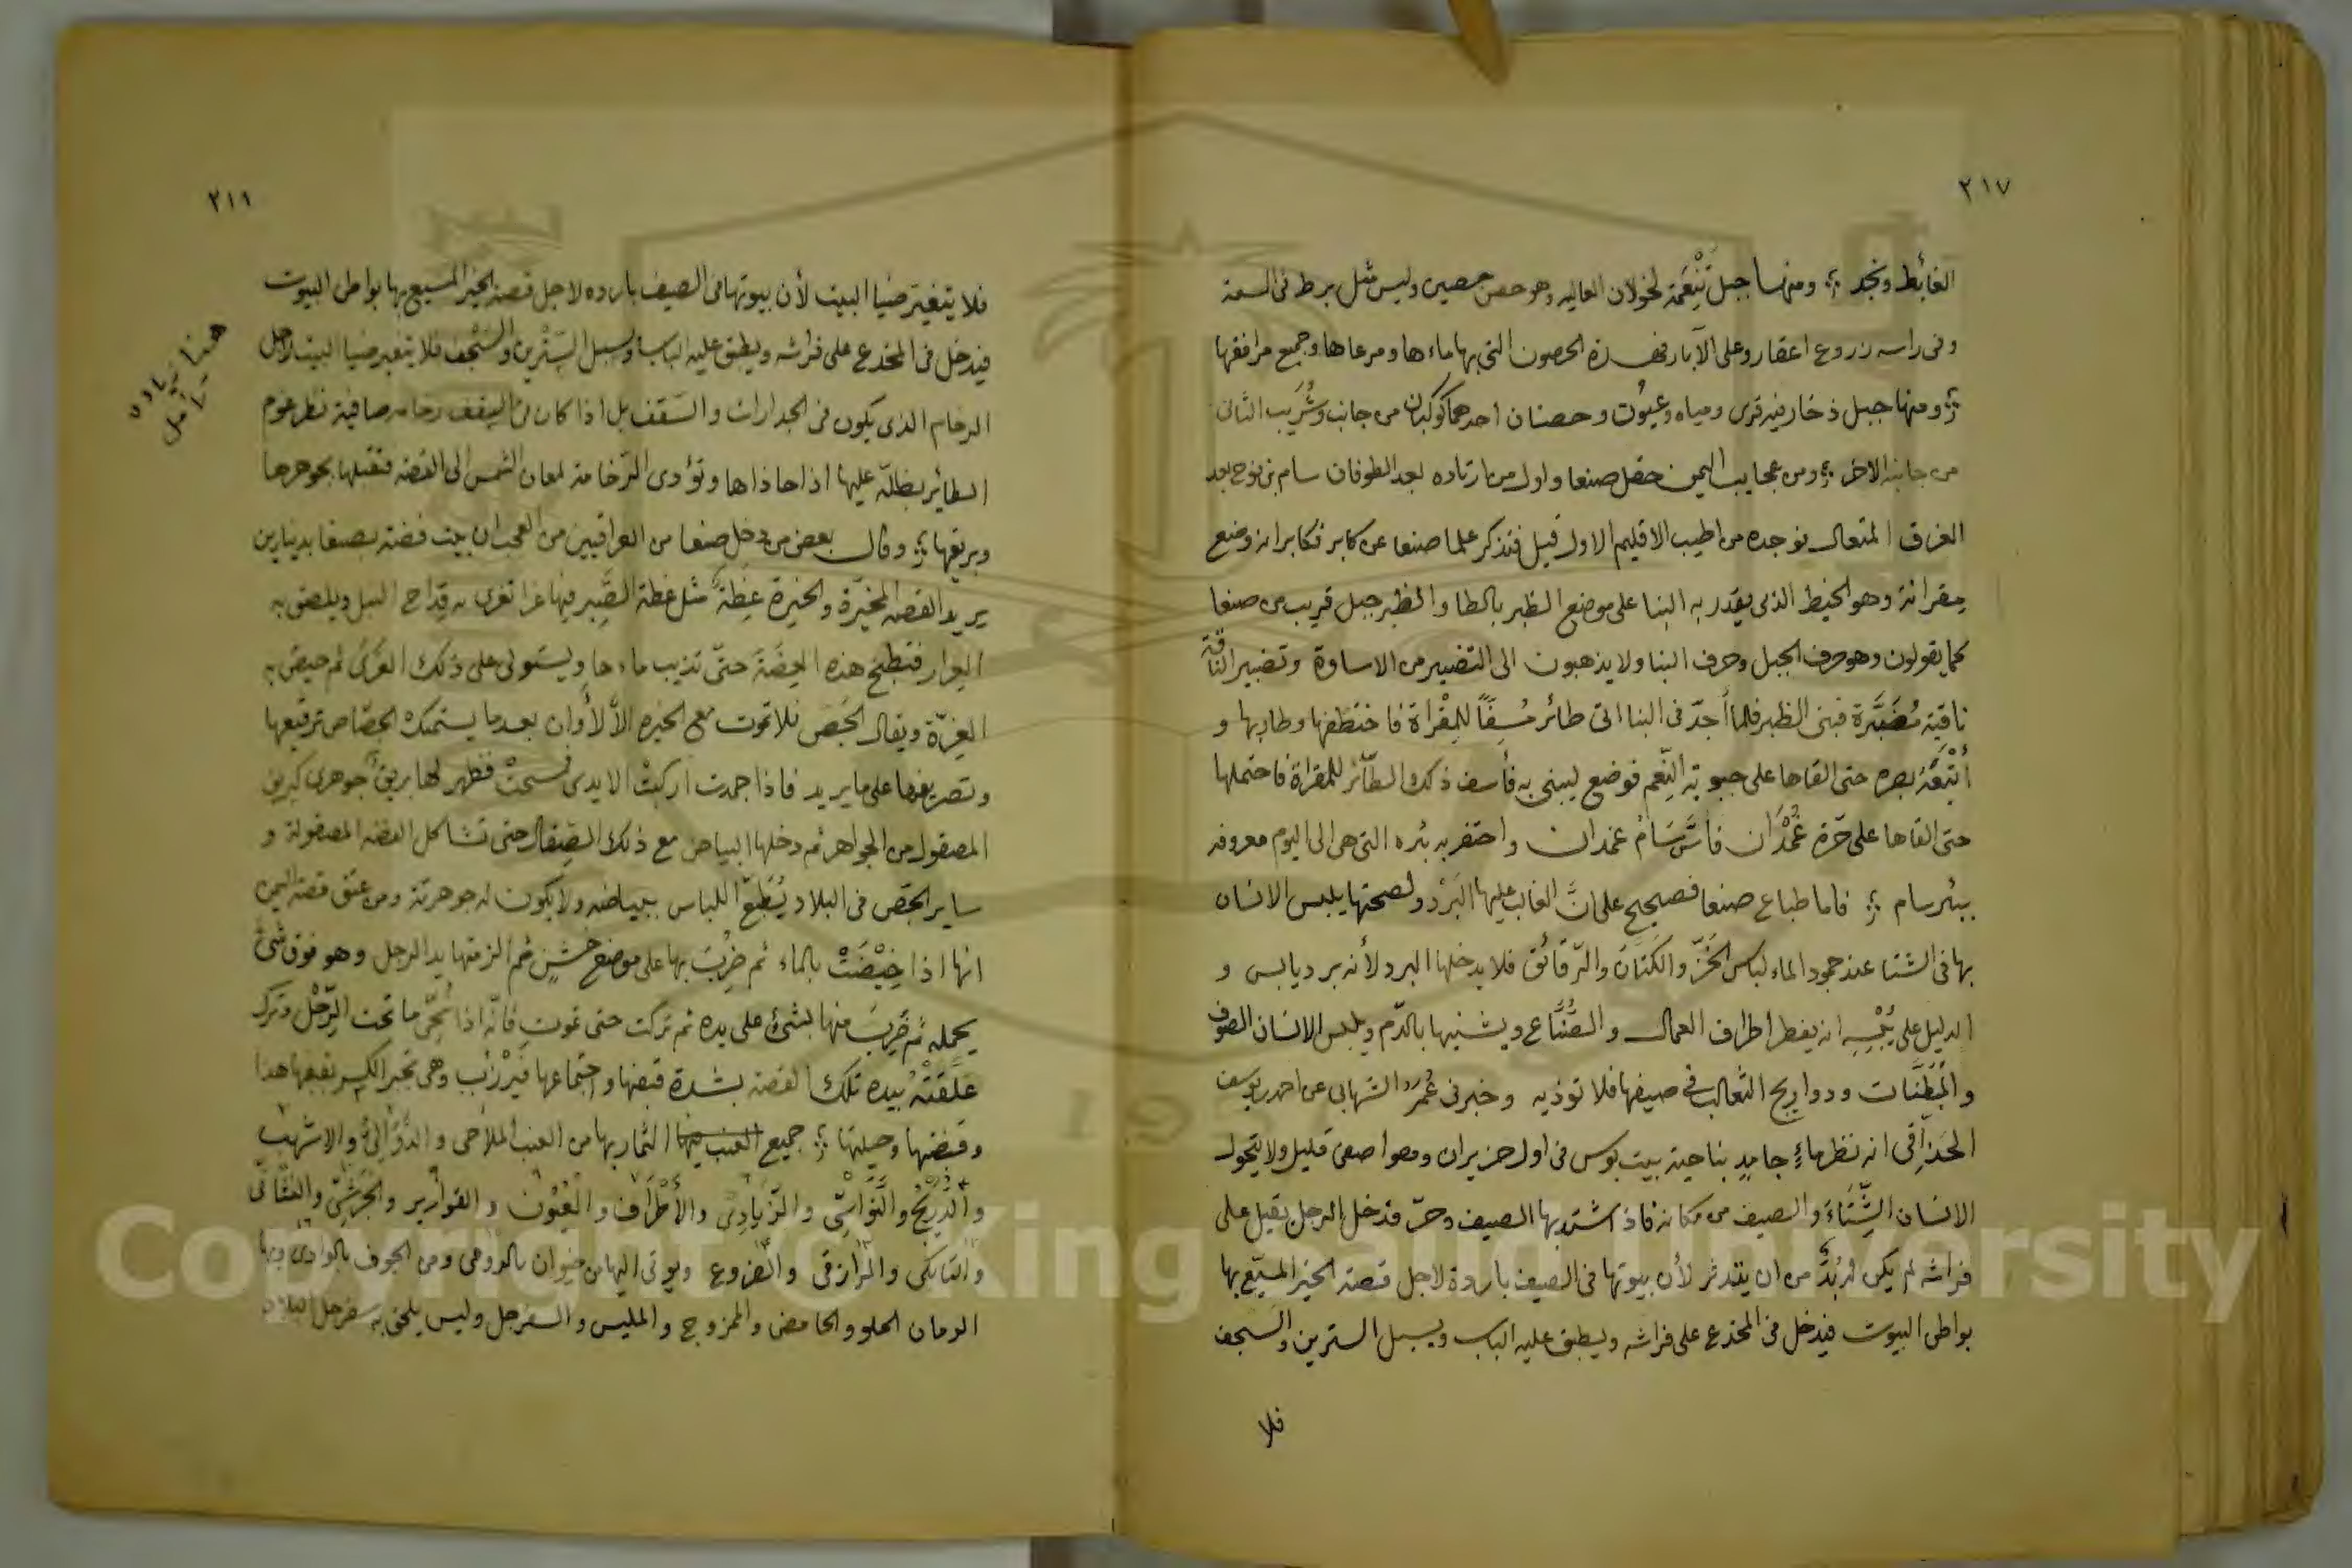 ٢١٧
الغائط ونجد ؛ ومنها جبل تَنْعُمَة لخولان العاليه وهو حصن حصين وليس مثل برط فى السعة
وفى راسه زروع اعقار وعلى الآبار فهذه الحصون التى بها ماءها ومرعاها وجميع مرافقها
؛ ومنها جبل ذخار فيه قرى ومياه وعيون وحصنان احدهما كوكبان من جانب وشُرَيب الثانى
من جانبه الاخر ؛ ومن عجايب اليمن حقل صنعا واول من ارتاده بعد الطوفان سام بن نوح بعد
الغرق المتعال فوجده من اطيب الاقليم الاول قيل فتذكر علما صنعا عن كابر فكابر انه وضع
مقرانة وهو الخيط الذى يقدر به البنا على موضع الظبر بالطا والظبر جبل قريب من صنعا
كما يقولون وهو حرف الجبل وحرف البنا ولا يذهبون الى التضبير من الاساوة وتضبير الناقة
ناقة مُضَبَّرة فبنى الظبر فلما أجدّ فى البنا اتى طائر مُسِفًّا للمِقْراة فاختطفها وطار بها و
أتبعَهُ بصره حتى القاها على جبوبة النَّعم فوضع ليبنى به فأسف ذلك الطائر للمقراة فاحتملها
حتى القاها على حَرة غُمْدَان فأسَّسَ سَامُ غمدان واحتفر به بئره التى هى الى اليوم معروفه
ببئر سام ؛ فاما طباع صنعا فصحيح على انَّ الغالب عليها البَرْد ولصحتها يلبس الانسان
بها فى الشتا عند جمود الماء لباس الخَزّ والكَتَّان والرّقائق فلا يدخلها البرد لأنه برد يابس و
الدليل على يُبْسِه انه يفطر اطراف العمال والصُّنَّاع ويشنيها بالدّم ويلبس الانسان الصوف
والمُبَطَّنَات ودواريج الثعالب فى صيفها فلا توذيه وخبرنى عُمَر الشهابى عن احمد بن يوسف
الحَذَاقِى انه نظر ماءٍ جامدٍ بناحية بيت بوس فى اول حزيران وهوا صفى قليل ولا يتحول
الانسان الشِّتَاءَ والصيف من مكانه فاذا اشتد بها الصيف وحرّ فدخل الرجل يقيل على
فراشه لم يكن له بُدٌّ من ان يتدثر لأن بيوتها فى الصيف باردة لاجل قصة الخير المسيّع بها
بواطن البيوت فيدخل فى المخدع على فراشه ويطبق عليه الباب ويسبل السترين والسجف
فلا
٢١٨
فلا يتغير ضيا البيت لأن بيوتها فى الصيف بارده لاجل قصة الخير المسيع بها بواطن البيوت
فيدخل فى المخدع على فراشه ويطبق عليه الباب ويسبل السِّتْرين والسَّجْف فلا يتغير ضيا البيت لاجل
الرخام الذى يكون فى الجدارات والسَّقف بل اذا كان فى السقف رخامه صافية نظر عوم
الطائر بظلّه عليها اذا حاذاها وتؤدى الرّخامة لمعان الشمس الى القصه فتقبلها بجوهرها
وبريقها ؛ وقال بعض من دخل صنعا من العراقيين من العجب ان بيت فضة بصنعا بدينارين
يريد القصه المخيرة والخيرة عِظة مثل عظة الصَّبِر فيها غرا تغرى به قداح النبل ويلصق به
العرار فتطبخ هذه العِضَة حتى تذيب ماءها ويستولى على ذلك الغَرَى ثم حيض به
الغِرّة ويقال الجَصّ فلا تموت مع الخيره الاّ لأوان بعد ما يستمك الجصّاص ترقيعها
وتصريفها على ما يريد فاذا جمدت اركبت الايدى فسحت فظهر لها بريق جوهرى كبريق
المصقول من الجواهر ثم دخلها البياض مع ذلك الصِقال حتى تشاكل الفضه المصقولة و
ساير الجَصّ فى البلاد يُطبّع اللباس ببياضه ولا يكون له جوهرية ومن عتق قصة اليمن
انها اذا خِيْضَتْ بالماء ثم ضُرِبَ بها على موضع خشن ثم الزمتها يد الرجل وهو فوق شئ
يحمله ثم ضَرِبَ منها بشئ على يده ثم تركت حتى تموت فانه اذا نُحِّى ما تحت الرِّجْل وترك
عَلَقَتْهُ بيده تلك القصة بشدة قبضها واجتماعها فَيَرْأب وهى تجبر الكسر بقبضها هذا
وقبضها وحيلتها ؛ جميع الثمار بها من العنب الملاحى والدَّوَّالِىّ والاشهب
والدَّرْبَج والنَّوَاسِى والزّيادى والأطْرَاف والعُيُون والقوارير والجُرَشِىّ والنشانى
والتابكى والرازقى والضروع ويوتى اليها من خيوان بالرومى ومن الجوف بالوادى وبها
الرمان الحلو والحامض والممزوج والمليس والسفرجل وليس يلحق به سفرجل البلاد
هنا زياده
تأمل
Copyright © King Saud University
1957